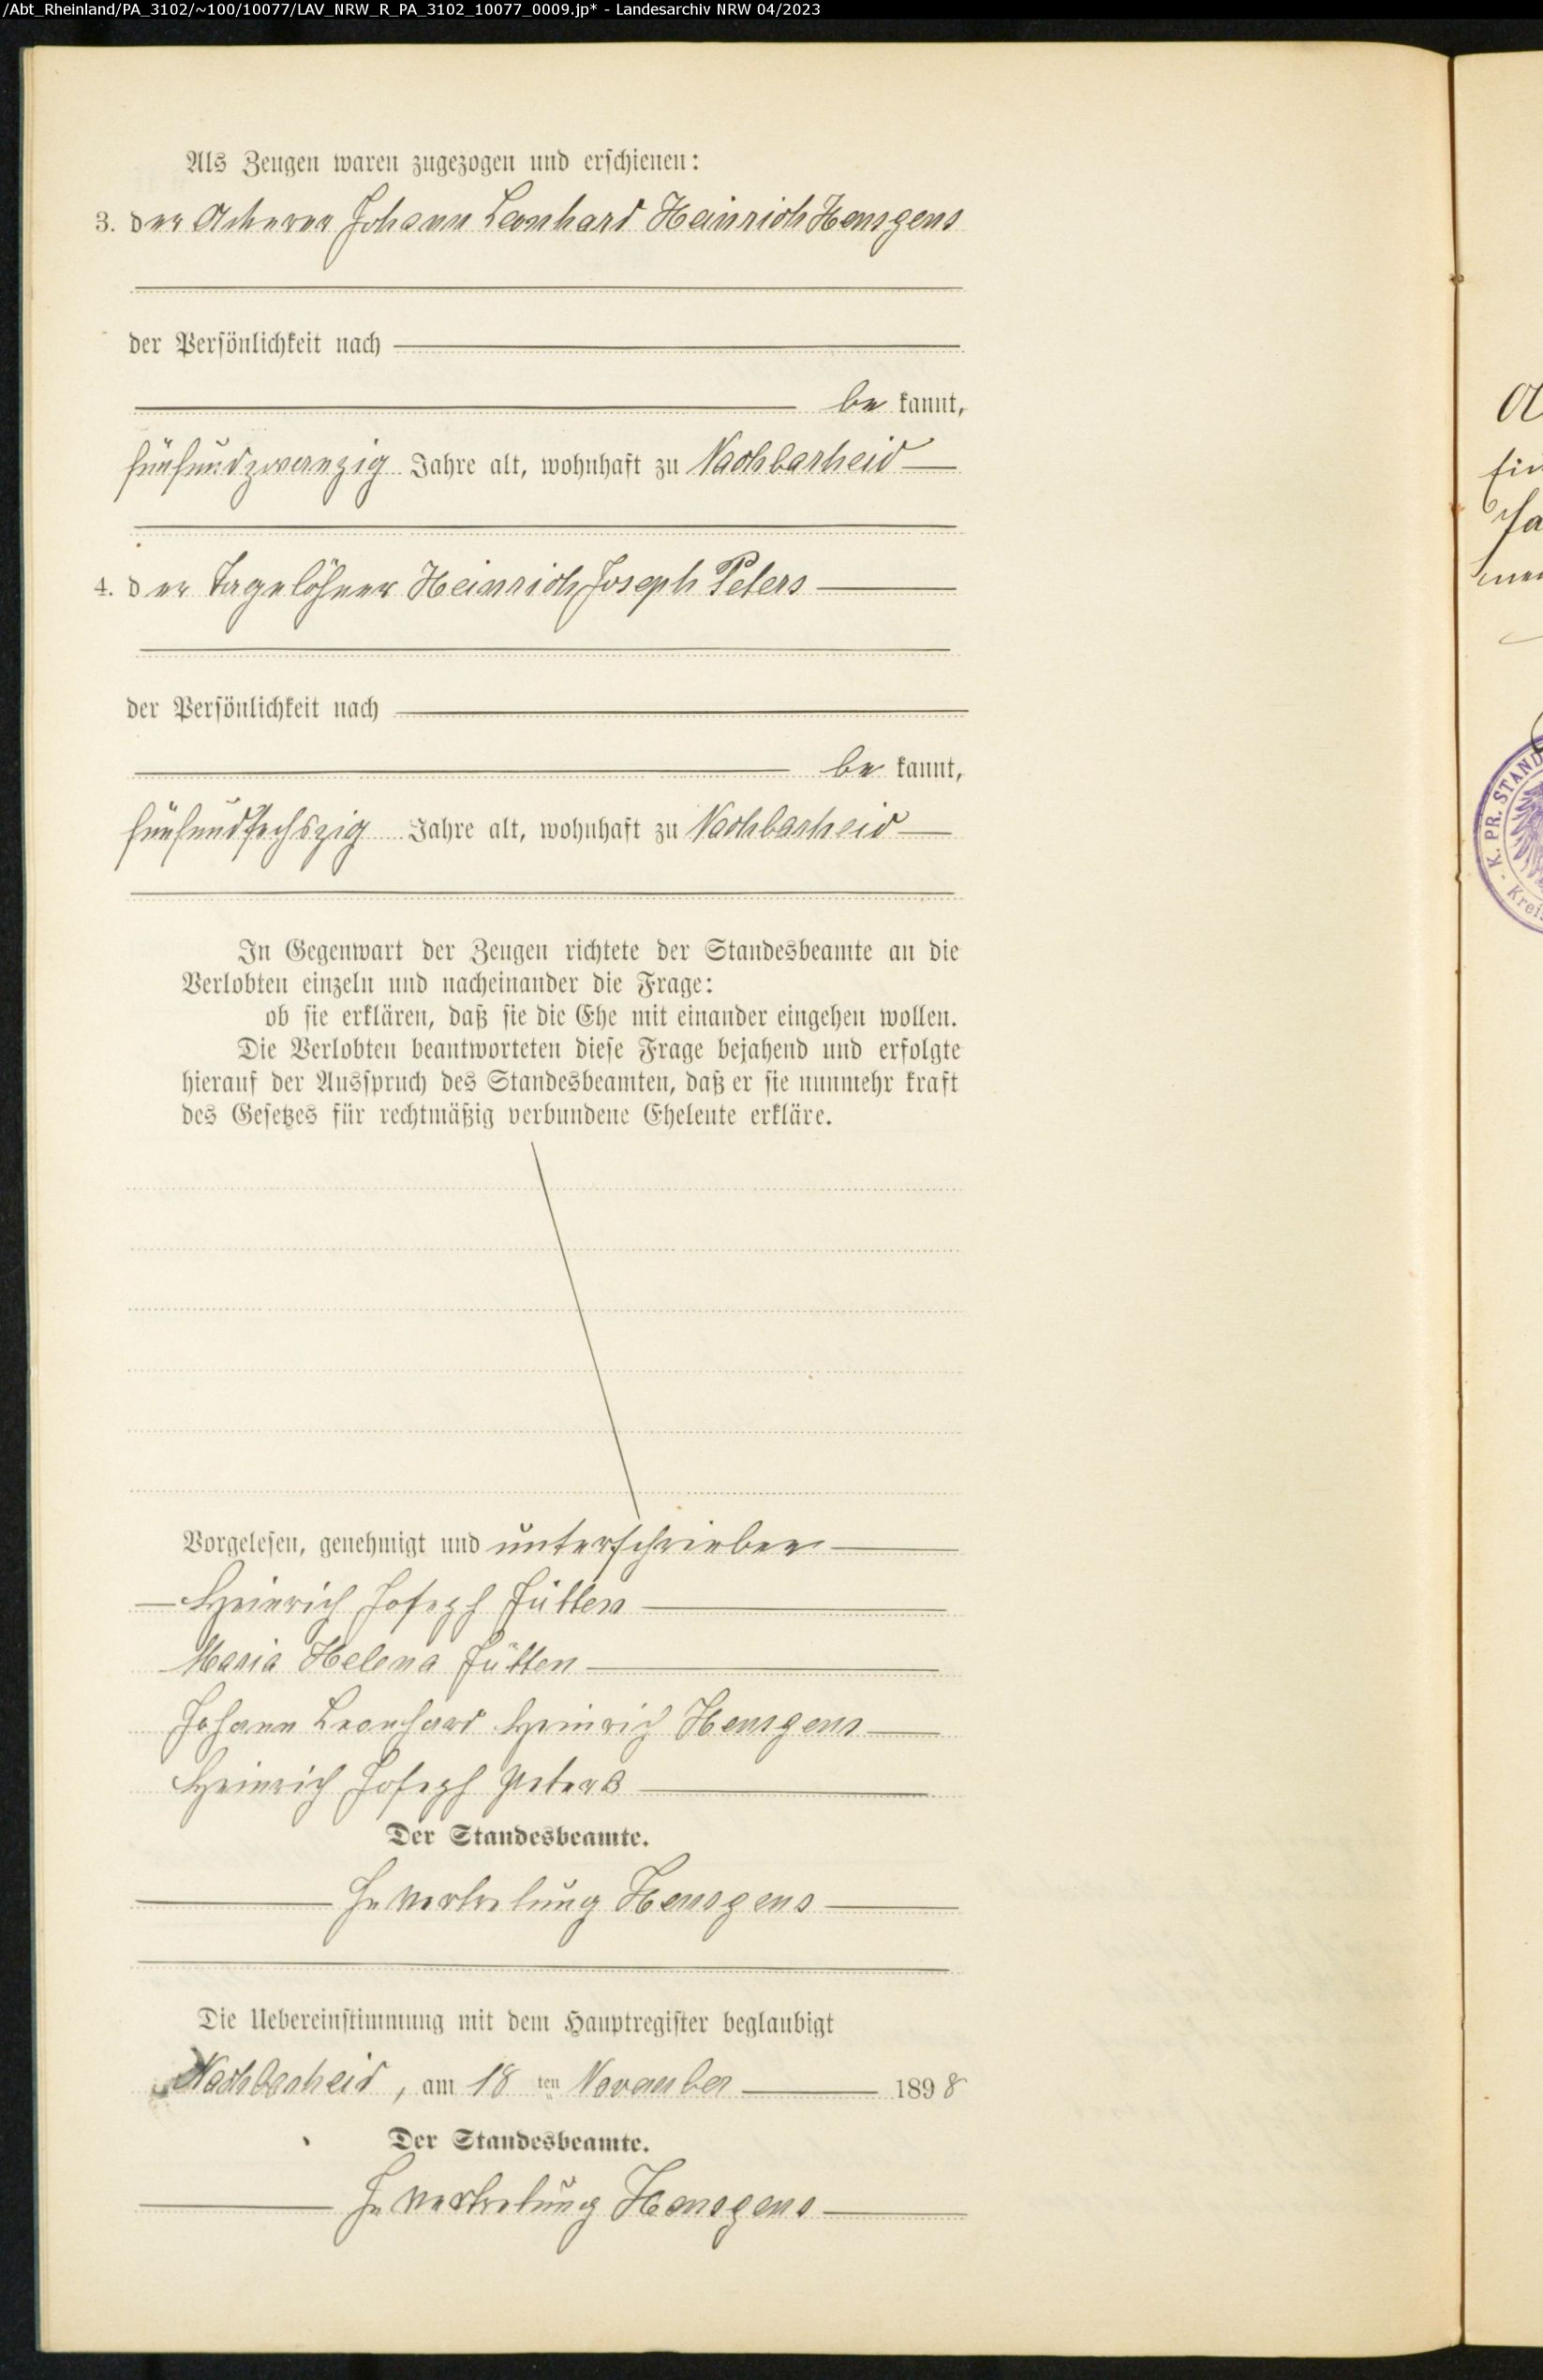 /Abt_Rheinland/PA_3102/~100/10077/LAV_NRW_R_PA_3102_10077_0009.jp* - Landesarchiv NRW 04/2023
Als Zeugen waren zugezogen und erschienen:
3. der Ackerer Johann Leonhard Heinrich Hensgens
der Persönlichkeit nach
be kannt,
fünfundzwanzig Jahre alt, wohnhaft zu Nachbarheid
4. der Tagelöhner Heinrich Joseph Peters
der Persönlichkeit nach
be kannt,
fünfundsechszig Jahre alt, wohnhaft zu Nachbarheid
In Gegenwart der Zeugen richtete der Standesbeamte an die
Verlobten einzeln und nacheinander die Frage:
ob sie erklären, daß sie die Ehe mit einander eingehen wollen.
Die Verlobten beantworteten diese Frage bejahend und erfolgte
hierauf der Ausspruch des Standesbeamten, daß er sie nunmehr kraft
des Gesetzes für rechtmäßig verbundene Eheleute erkläre.
Vorgelesen, genehmigt und unterschrieben
Heinrich Joseph Jütten
Maria Helena Jütten
Johann Leonhard Heinrich Hensgens
Heinrich Joseph Peters
Der Standesbeamte.
In Vertretung Hensgens
Die Uebereinstimmung mit dem Hauptregister beglaubigt
Nachbarheid, am 18 ten November 1898
Der Standesbeamte.
In Vertretung Hensgens
K. PR. STAND
Kreis